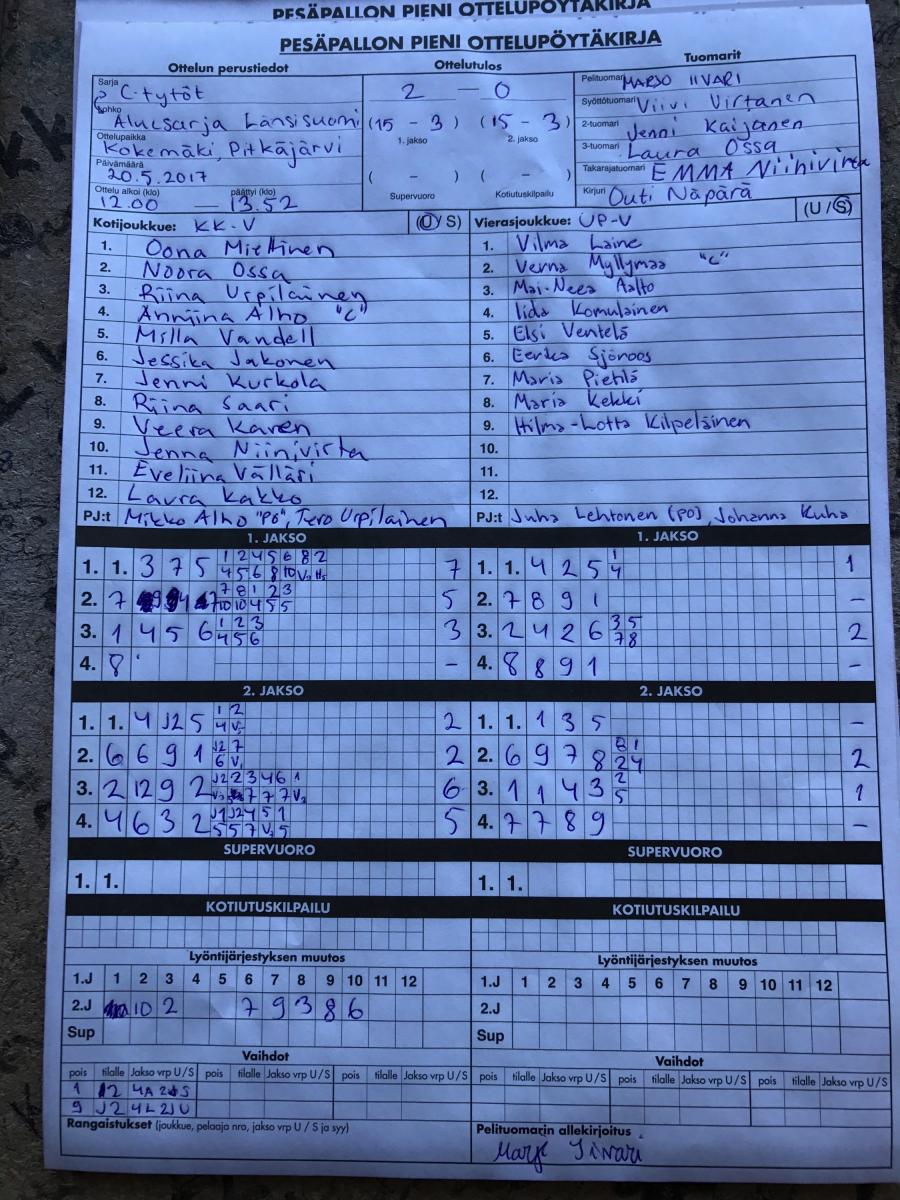 PESÄPALLON PIENI OTTELUPÖYTÄKIRJA
PESÄPALLON PIENI OTTELUPÖYTÄKIRJA
Ottelun perustiedot
Sarja C-tytöt
Lohko Aluesarja Länsisuomi
Ottelupaikka Kokemäki, Pitkäjärvi
Päivämäärä 20.5.2017
Ottelu alkoi (klo) päättyi (klo)
12.00 — 13.52
Ottelutulos
2 — 0
(15 - 3) (15 - 3)
1. jakso 2. jakso
( - ) ( - )
Supervuoro Kotiutuskilpailu
Tuomarit
Pelituomari MARJO IIVARI
Syöttötuomari Viivi Virtanen
2-tuomari Jenni Kaijanen
3-tuomari Laura Ossa
Takarajatuomari EMMA Niinivirta
Kirjuri Outi Näpärä
Kotijoukkue: KK-V (U / S)
1. Oona Miettinen
2. Noora Ossa
3. Riina Urpilainen
4. Anniina Alho "C"
5. Milla Vandell
6. Jessika Jakonen
7. Jenni Kurkola
8. Riina Saari
9. Veera Karen
10. Jenna Niinivirta
11. Eveliina Välläri
12. Laura Kakko
PJ:t Mikko Alho "PO", Tero Urpilainen
Vierasjoukkue: UP-V (U / S)
1. Vilma Laine
2. Verna Myllymaa "C"
3. Mai-Neea Aalto
4. Iida Komulainen
5. Elsi Ventelä
6. Eerika Sjöroos
7. Maria Pietilä
8. Maria Kekki
9. Hilma-Lotta Kilpeläinen
10.
11.
12.
PJ:t Juha Lehtonen (PO), Johanna Kuha
1. JAKSO
1. 1. 3 7 5 1 2 4 5 6 8 2 7
4 5 6 8 10
2. 7 7 8 1 2 3 5
10 10 4 5 5
3. 1 4 5 6 1 2 3 3
4 5 6
4. 8 -
1. JAKSO
1. 1. 4 2 5 1 1
4
2. 7 8 9 1 -
3. 2 4 2 6 3 5 2
7 8
4. 8 8 9 1 -
2. JAKSO
1. 1. 4 J2 5 1 2 2
4
2. 6 6 9 1 J2 7 2
6
3. 2 12 9 2 J2 2 3 4 6 1 6
7 7 7
4. 4 6 3 2 J1 J2 4 5 1 5
5 5 7 5
2. JAKSO
1. 1. 1 3 5 -
2. 6 9 7 8 8 1 2
2 4
3. 1 1 4 3 2 1
5
4. 7 7 8 9 -
SUPERVUORO
1. 1.
SUPERVUORO
1. 1.
KOTIUTUSKILPAILU
KOTIUTUSKILPAILU
Lyöntijärjestyksen muutos
1.J 1 2 3 4 5 6 7 8 9 10 11 12
2.J 10 2 7 9 3 8 6
Sup
Lyöntijärjestyksen muutos
1.J 1 2 3 4 5 6 7 8 9 10 11 12
2.J
Sup
Vaihdot
pois tilalle Jakso vrp U / S pois tilalle Jakso vrp U / S pois tilalle Jakso vrp U / S
1 4A
9 J2 4L 2J U
Vaihdot
pois tilalle Jakso vrp U / S pois tilalle Jakso vrp U / S pois tilalle Jakso vrp U / S
Rangaistukset (joukkue, pelaaja nro, jakso vrp U / S ja syy)
Pelituomarin allekirjoitus
Marjo Iivari